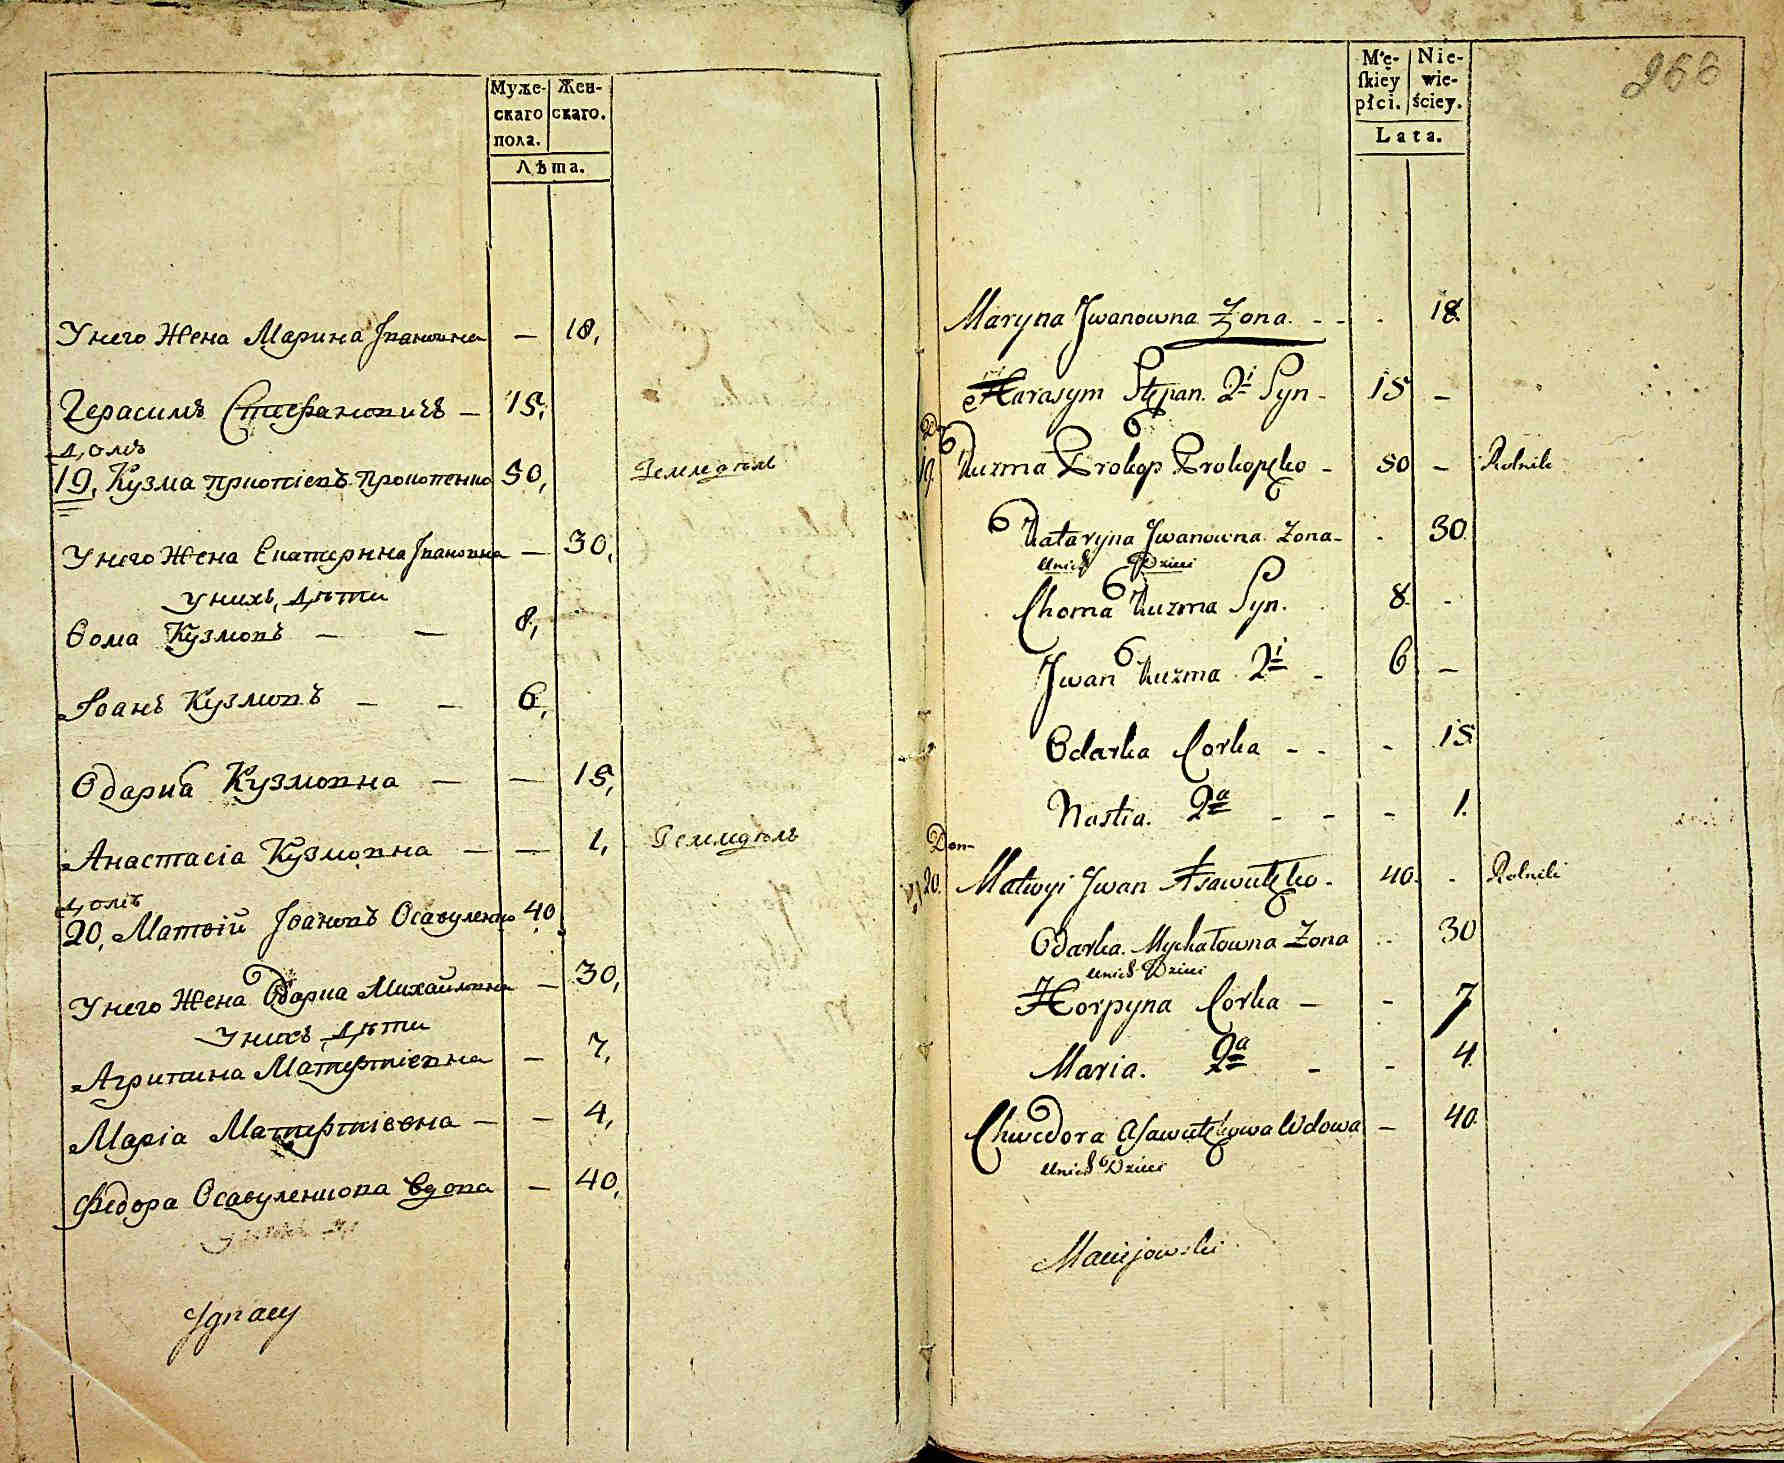 Муже- Жен-
скаго скаго.
пола.
Лѣта.
У него Жена Марина Івановна — 18,
Герасимъ Стефановичъ — 15,
домъ
19, Кузма Прокопіевъ Прокопенко 50, Земледѣль
У него Жена Екатерина Івановна — 30,
У нихъ дѣти
Ѳома Кузмовъ — — 8,
Іоанъ Кузмовъ — — 6,
Одарка Кузмовна — — 15,
Анастасіа Кузмовна — — 1, Земледѣль
домъ
20, Матвій Іоановъ Осавуленко 40
У него Жена Одарка Михайловна — 30,
У нихъ дѣти
Агрипина Матвѣевна — 7,
Маріа Матвѣевна — — 4,
Федора Осавуленкова вдова — 40,
Ignacy
256
Mę- Nie-
skiey wie-
płci. ściey.
Lata.
Maryna Jwanowna Żona - - - 18.
Harasym Stepan. 2i Syn - 15 -
Dom
19. Kuzma Prokop Prokopęko - 50 - Rolnik
Kataryna Jwanowna Żona - . 30.
Unich Dzieci
Choma Kuzma Syn. 8. -
Jwan Kuzma 2i - 6. -
Odarka Corka - - - 15.
Nastia. 2a - - - 1.
Dom
20. Matwyi Jwan Asawulęko - 40. - Rolnik
Odarka. Mychałowna Żona .. 30
Unich Dzieci
Horpyna Corka — - 7
Maria. 2a - - 4.
Chwedora Asawulękowa Wdowa — 40.
Unich Dzieci
Maciejowski